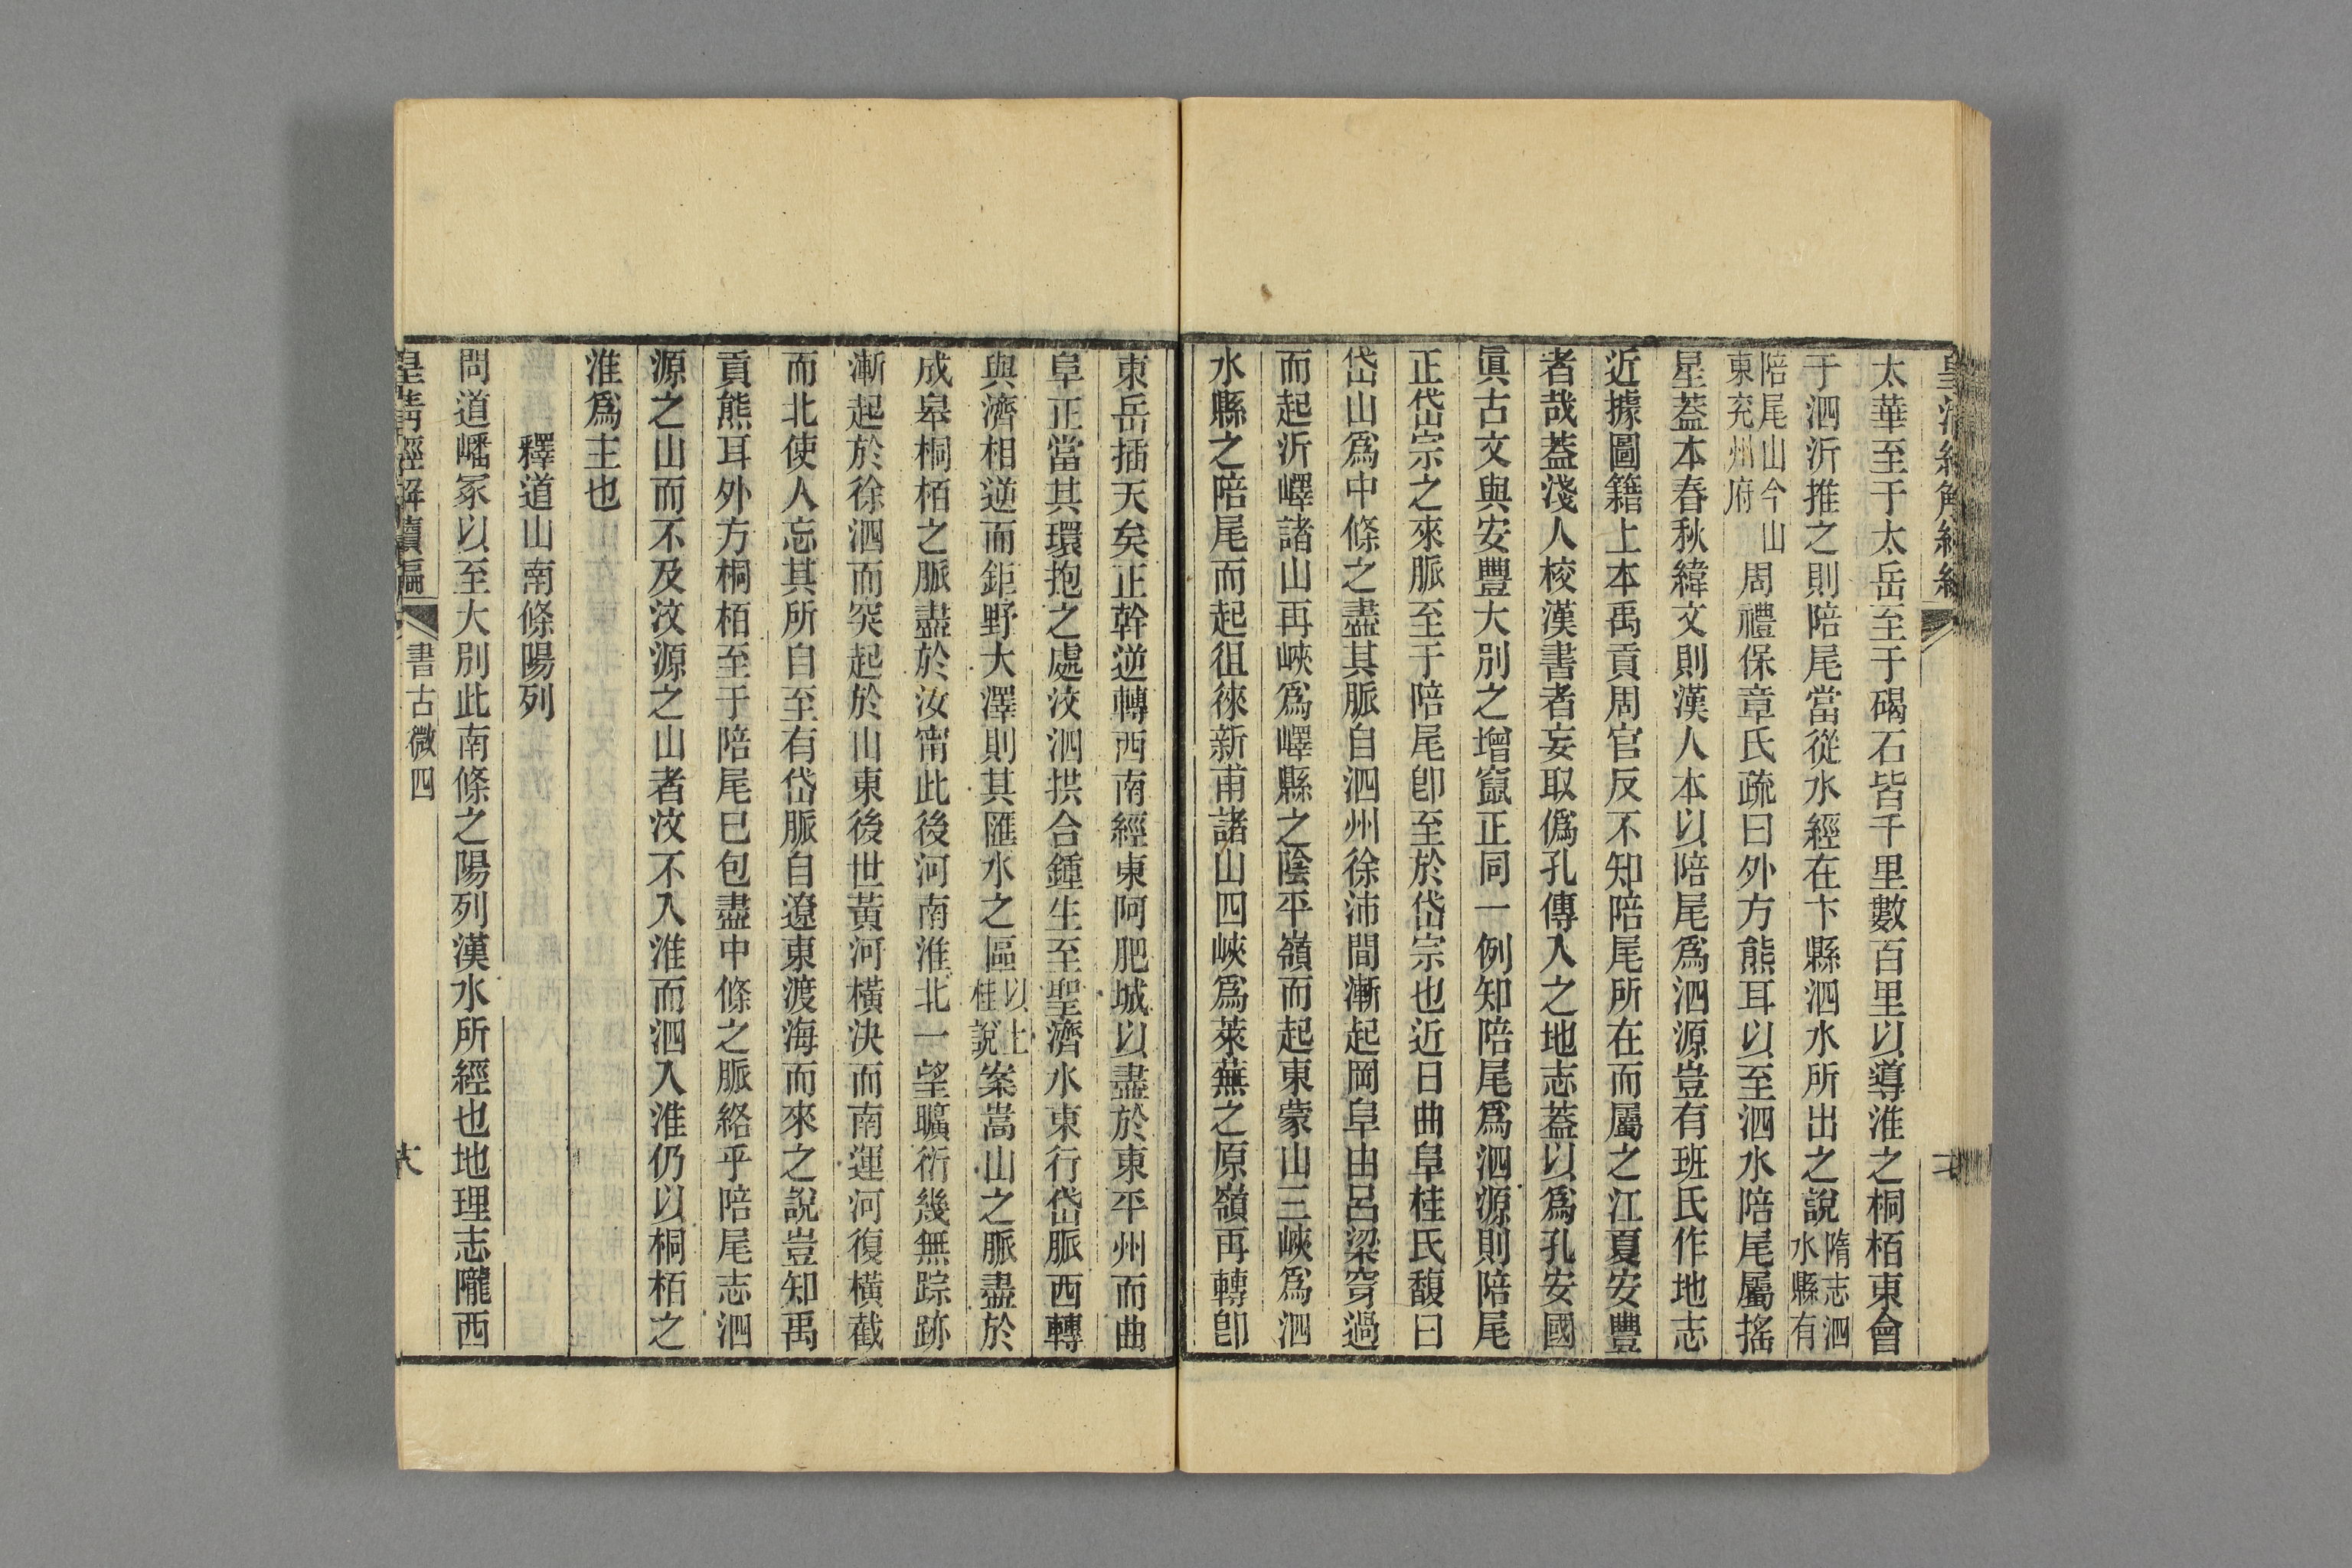 太華至于太岳至于碣石皆千里數百里以導淮之桐栢東會
于泗沂推之則陪尾當從水經在卞縣泗水所出之說隋志泗水縣有
陪尾山今山東兖州府周禮保章氏疏曰外方熊耳以至泗水陪尾屬搖
星葢本春秋緯文則漢人本以陪尾爲泗源豈有班氏作地志
近據圖籍上本禹貢周官反不知陪尾所在而屬之江夏安豐
者哉葢淺人校漢書者妄取僞孔傳入之地志葢以爲孔安國
眞古文與安豐大別之增竄正同一例知陪尾爲泗源則陪尾
正岱宗之來脈至于陪尾卽至於岱宗也近日曲阜桂氏馥曰
岱山爲中條之盡其脈自泗州徐沛間漸起岡阜由呂梁穿過
而起沂嶧諸山再峽爲嶧縣之陰平嶺而起東蒙山三峽爲泗
水縣之陪尾而起徂徠新甫諸山四峽爲萊蕪之原嶺再轉卽
東岳插天矣正幹逆轉西南經東阿肥城以盡於東平州而曲
阜正當其環抱之處汶泗拱合鍾生至聖濟水東行岱脈西轉
與濟相逆而鉅野大澤則其匯水之區以上桂說案嵩山之脈盡於
成皋桐栢之脈盡於汝甯此後河南淮北一望曠衍幾無踪跡
漸起於徐泗而突起於山東後世黃河橫決而南運河復橫截
而北使人忘其所自至有岱脈自遼東渡海而來之說豈知禹
貢熊耳外方桐栢至于陪尾已包盡中條之脈絡乎陪尾志泗
源之山而不及汶源之山者汶不入淮而泗入淮仍以桐栢之
淮爲主也
釋道山南條陽列
問道嶓冢以至大別此南條之陽列漢水所經也地理志隴西
皇清經解續編
書古微四